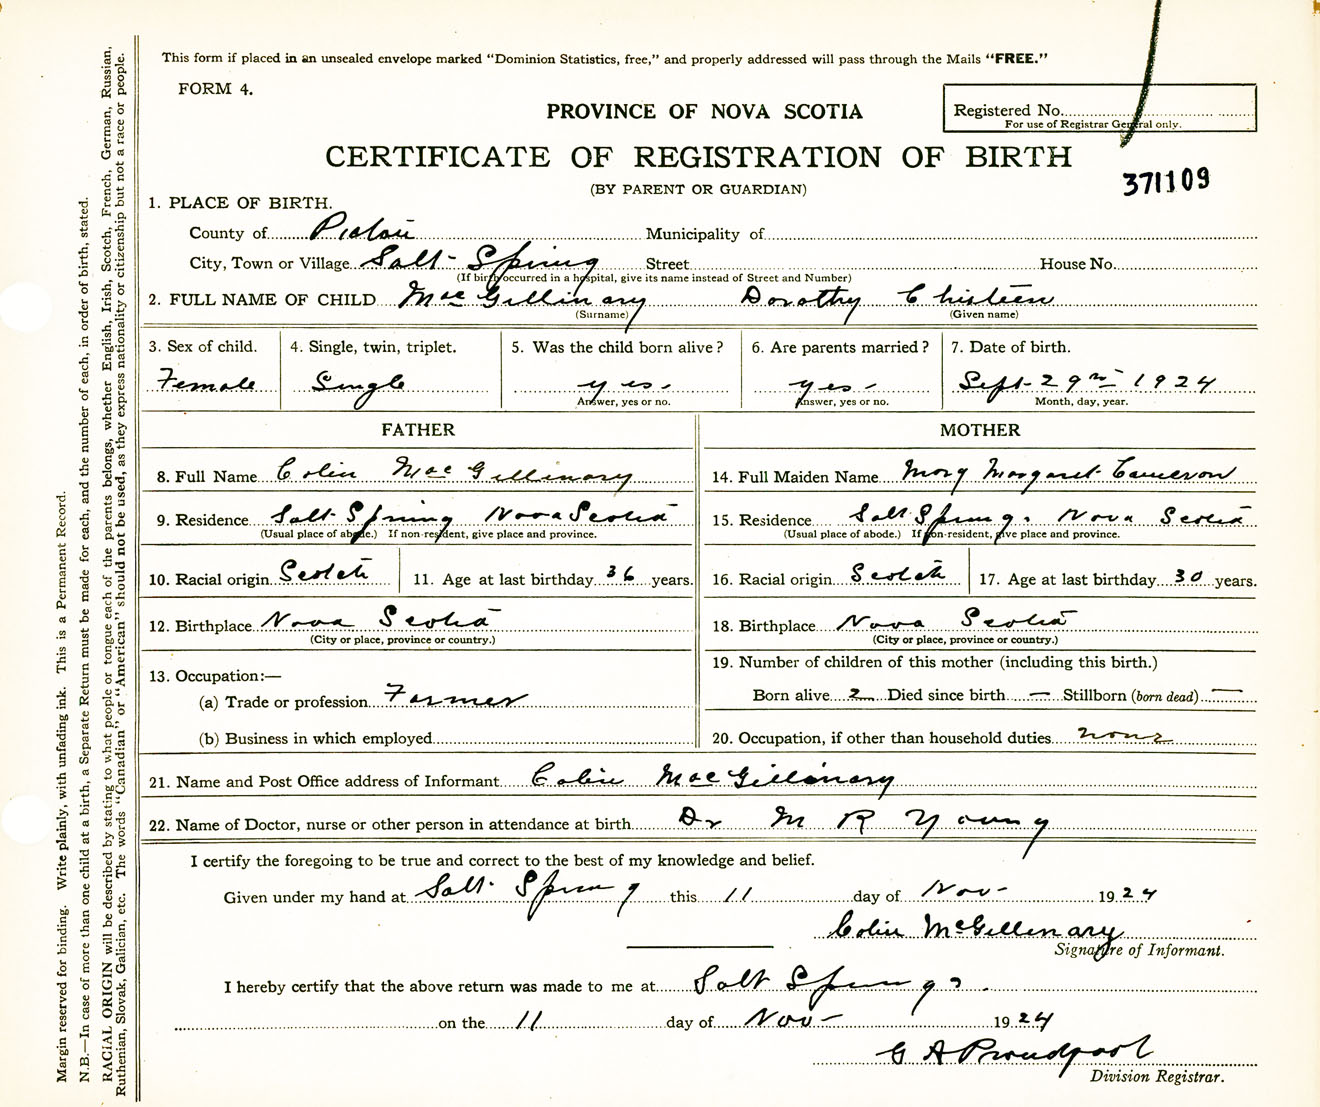 This form if placed in an unsealed envelope marked "Dominion Statistics, free," and properly addressed will pass through the Mails "FREE."
FORM 4.
PROVINCE OF NOVA SCOTIA
Registered No.
For use of Registrar General only.
CERTIFICATE OF REGISTRATION OF BIRTH
371109
(BY PARENT OR GUARDIAN)
1. PLACE OF BIRTH.
County of Pictou Municipality of
City, Town or Village Salt Spring Street House No.
(If birth occurred in a hospital, give its name instead of Street and Number)
2. FULL NAME OF CHILD MacGillivary Dorothy Christeen
(Surname) (Given name)
3. Sex of child. 4. Single, twin, triplet. 5. Was the child born alive? 6. Are parents married? 7. Date of birth.
Female Single yes yes Sept 29th 1924
Answer, yes or no. Answer, yes or no. Month, day, year.
FATHER MOTHER
8. Full Name Colin MacGillivary 14. Full Maiden Name Mary Margaret Cameron
9. Residence Salt Spring Nova Scotia 15. Residence Salt Springs. Nova Scotia
(Usual place of abode.) If non-resident, give place and province. (Usual place of abode.) If non-resident, give place and province.
10. Racial origin Scotch 11. Age at last birthday 36 years. 16. Racial origin Scotch 17. Age at last birthday 30 years.
12. Birthplace Nova Scotia 18. Birthplace Nova Scotia
(City or place, province or country.) (City or place, province or country.)
13. Occupation:— 19. Number of children of this mother (including this birth.)
(a) Trade or profession Farmer Born alive 2 Died since birth — Stillborn (born dead) —
(b) Business in which employed 20. Occupation, if other than household duties none
21. Name and Post Office address of Informant Colin MacGillivary
22. Name of Doctor, nurse or other person in attendance at birth Dr M R Young
I certify the foregoing to be true and correct to the best of my knowledge and belief.
Given under my hand at Salt Spring this 11 day of Nov- 1924
Colin McGillivary
Signature of Informant.
I hereby certify that the above return was made to me at Salt Springs.
on the 11 day of Nov- 1924
G A Proudfoot
Division Registrar.
Margin reserved for binding. Write plainly, with unfading ink. This is a Permanent Record.
N.B.—In case of more than one child at a birth, a Separate Return must be made for each, and the number of each, in order of birth, stated.
RACIAL ORIGIN will be described by stating to what people or tongue each of the parents belongs, whether English, Irish, Scotch, French, German, Russian,
Ruthenian, Slovak, Galician, etc. The words "Canadian" or "American" should not be used, as they express nationality or citizenship but not a race or people.